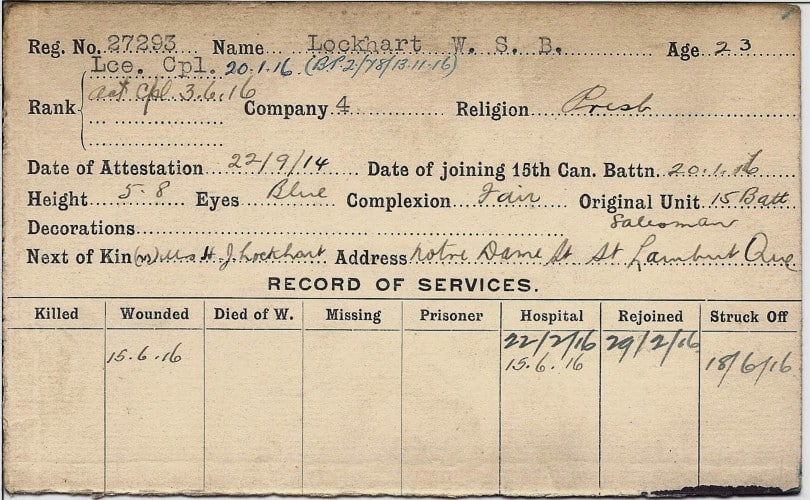 Reg. No. 27293 Name Lockhart W. S. B. Age 23
Lce. Cpl. 20.1.16 (BP2/78/13.11.16)
Rank Act Cpl 3.6.16 Company 4 Religion Presb
Date of Attestation 22/9/14 Date of joining 15th Can. Battn. 20.1.16
Height 5-8 Eyes Blue Complexion Fair Original Unit 15 Batt
Decorations Salesman
Next of Kin (m) Mrs H. J. Lockhart Address Notre Dame St St Lambert Que
RECORD OF SERVICES.
Killed Wounded Died of W. Missing Prisoner Hospital Rejoined Struck Off
22/2/16 29/2/16
15.6.16 15.6.16 18/6/16